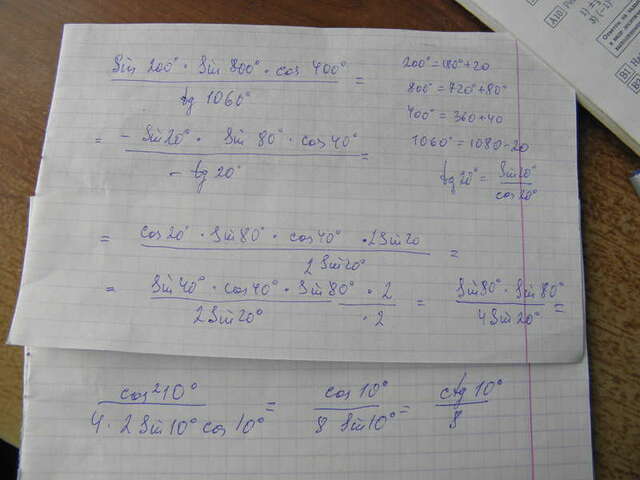 sin 200° · sin 800° · cos 400° / tg 1060° =
200° = 180° + 20
800° = 720° + 80°
400° = 360 + 40
1060° = 1080 - 20
= - sin 20° · sin 80° · cos 40° / - tg 20° =
tg 20° = sin 20° / cos 20°
= cos 20° · sin 80° · cos 40° · 2 sin 20 / 2 sin 20° =
= sin 40° · cos 40° · sin 80° · 2 / 2 sin 20° · 2 = sin 80° · sin 80° / 4 sin 20° =
cos² 10° / 4 · 2 sin 10° cos 10° = cos 10° / 8 sin 10° = ctg 10° / 8
A10
3) (-1)
B1
B2